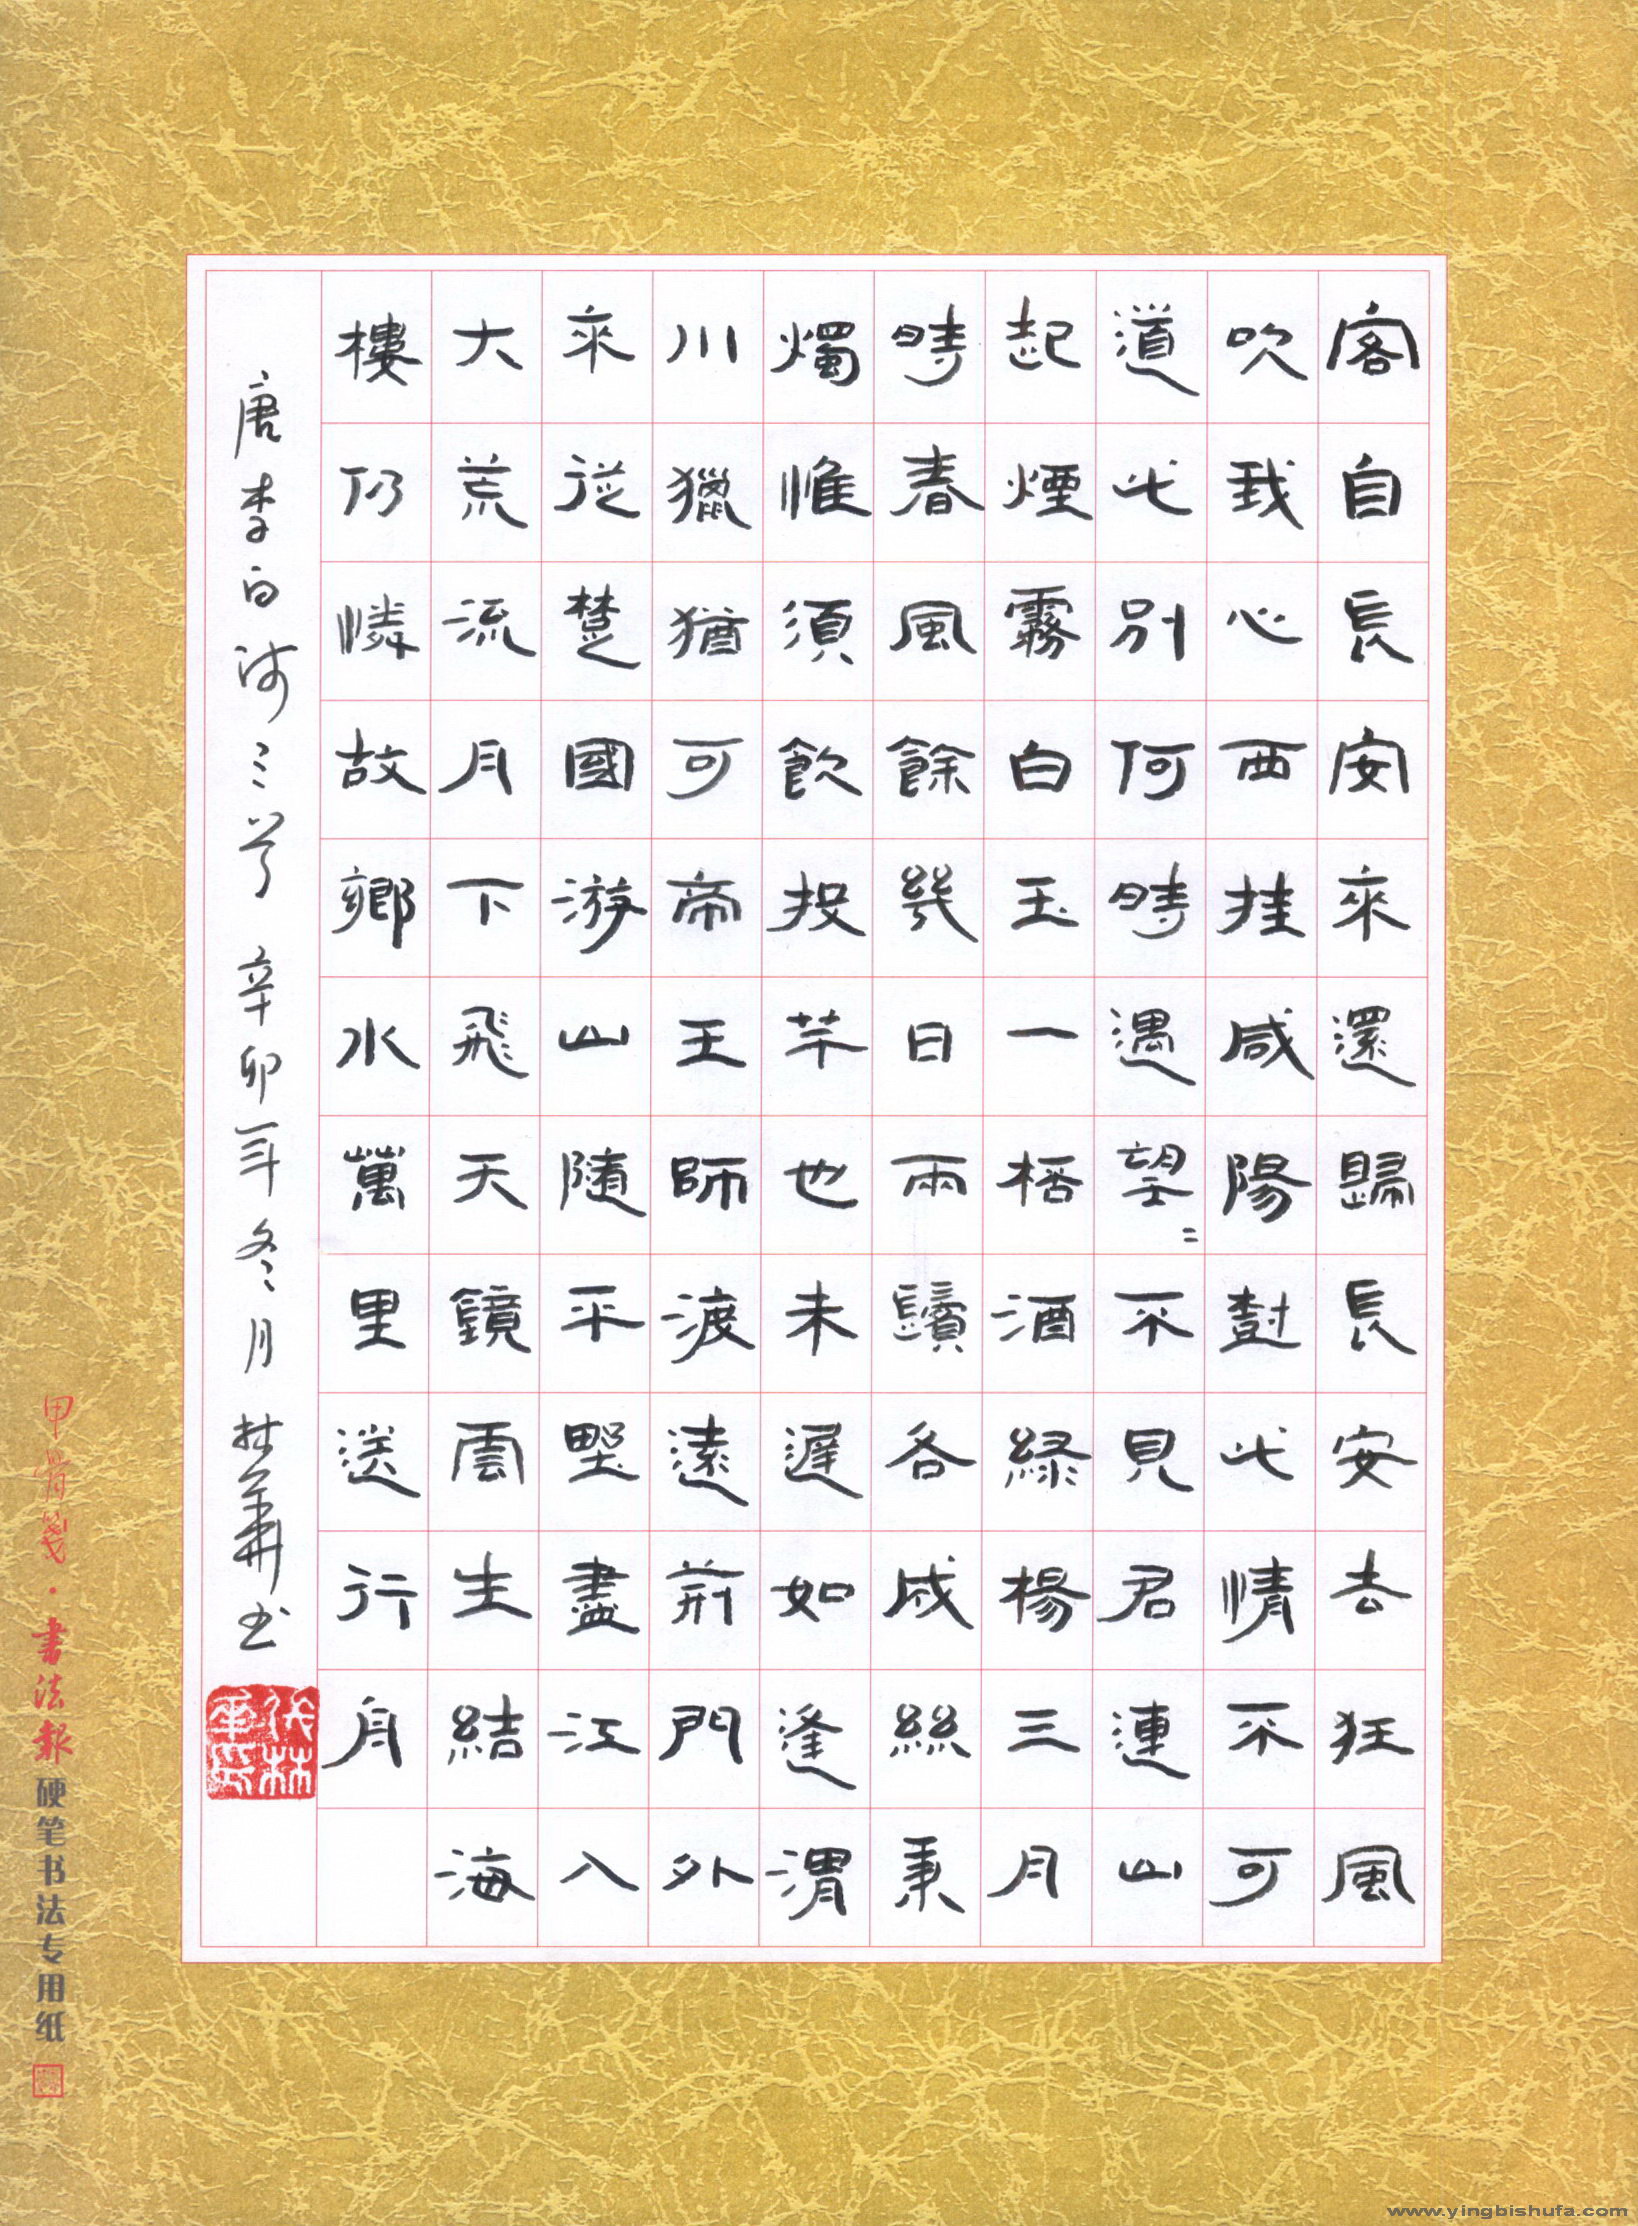 客自長安來還歸長安去狂風
吹我心西挂咸陽樹此情不可
道此別何時遇望〻不見君連山
起煙霧白玉一杯酒綠楊三月
時春風餘幾日兩鬢各成絲秉
燭惟須飲投竿也未遲如逢渭
川獵猶可帝王師渡遠荊門外
來從楚國游山隨平野盡江入
大荒流月下飛天鏡雲生結海
樓仍憐故鄉水萬里送行舟
唐李白詩三首 辛卯年冬月 林華書
甲骨箋·書法報硬笔书法专用纸
www.yingbishufa.com